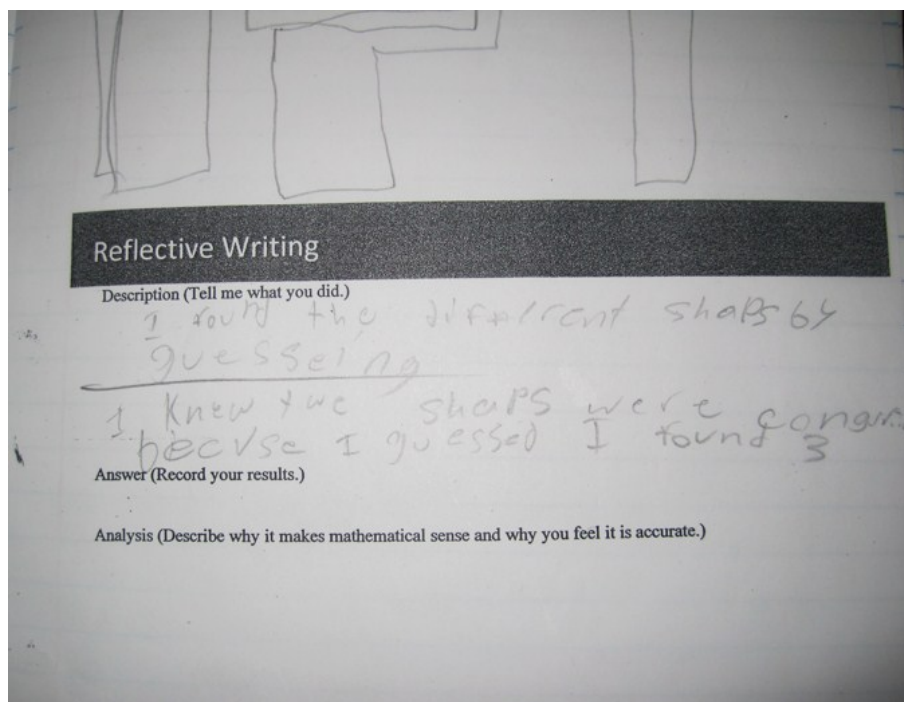 Reflective Writing
Description (Tell me what you did.)
I found the different shaps by
guesseing
I knew twe shaps were congur
becuse I guessed I found 3
Answer (Record your results.)
Analysis (Describe why it makes mathematical sense and why you feel it is accurate.)